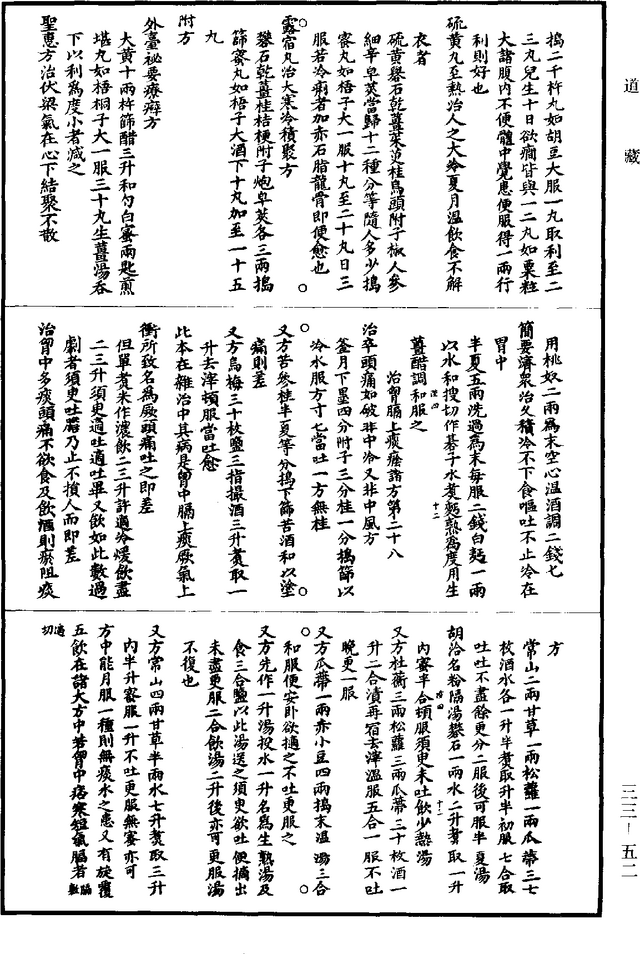 道藏
搗二千杵丸如胡豆大服一丸取利至二
三丸兒生十日欲癇皆與一二丸如粟粒
大諸腹内不便體中覺患便服得一兩行
利則好也
硫黄丸至熱治人之大冷夏月温飲食不解
衣者
硫黄礜石乾薑茱萸桂烏頭附子椒人參
細辛皁莢當歸十二種分等隨人多少搗
蜜丸如梧子大一服十丸至二十丸日三
服若冷痢者加赤石脂龍骨即便愈也
露宿丸治大寒冷積聚方
礜石乾薑桂桔梗附子炮皁莢各三兩搗
篩蜜丸如梧子大酒下十丸加至一十五
丸
附方
外臺祕要療癖方
大黄十兩杵篩醋三升和勻白蜜兩匙煎
堪丸如梧桐子大一服三十丸生薑湯吞
下以利爲度小者減之
聖惠方治伏梁氣在心下結聚不散
用桃奴二兩爲末空心温酒調二錢匕
簡要濟衆治久積冷不下食嘔吐不止冷在
胃中
半夏五兩洗過爲末每服二錢白麪一兩
以水和搜切作棊子水煮麪熟爲度用生
薑醋調和服之
治胷膈上痰癊諸方第二十八
治卒頭痛如破非中冷又非中風方
釜月下墨四分附子三分桂一分搗篩以
冷水服方寸匕當吐一方無桂
又方苦參桂半夏等分搗下篩苦酒和以塗
痛則差
又方烏梅三十枚鹽三指撮酒三升煮取一
升去滓頓服當吐愈
此本在雜治中其病是胷中膈上痰厥氣上
衝所致名爲厥頭痛吐之即差
但單煮米作濃飲二三升許適冷煖飲盡
二三升須臾適吐適吐畢又飲如此數過
劇者須臾吐膽乃止不損人而即差
治胷中多痰頭痛不欲食及飲酒則瘀阻痰
方
常山二兩甘草一兩松蘿一兩瓜蔕三七
枚酒水各一升半煮取升半初服七合取
吐吐不盡餘更分二服後可服半夏湯
胡洽名粉隔湯礬石一兩水二升煮取一升
内蜜半合頓服須臾未吐飲少熱湯
又方杜蘅三兩松蘿三兩瓜蔕三十枚酒一
升二合漬再宿去滓温服五合一服不吐
晚更一服
又方瓜蔕一兩赤小豆四兩搗末温湯三合
和服便安卧欲擿之不吐更服之
又方先作一升湯投水一升名爲生熟湯及
食三合鹽以此湯送之須臾欲吐便摘出
未盡更服二合飲湯二升後亦可更服湯
不復也
又方常山四兩甘草半兩水七升煮取三升
内半升蜜服一升不吐更服無蜜亦可
方中能月服一種則無痰水之患又有旋覆
五飲在諸大方中若胷中痞寒短氣膈者
三三—五二